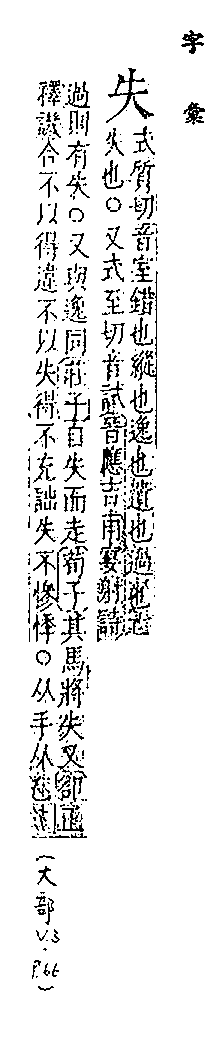 字彙
失
式質切音室錯也縱也逸也遺也過也
失也○又式至切音試晉應吉甫宴射詩
過則有失○又與逸同莊子自失而走荀子其馬將失又
釋議合不以得違不以失得不充詘失不慘悸○从手从
(大部
V.3
P.66)